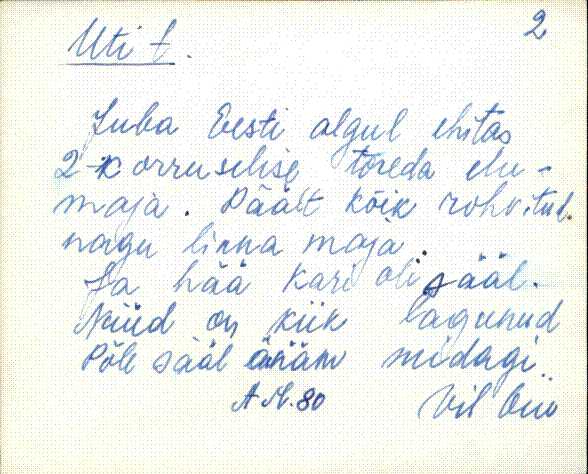 2
Uti t.
Juba Eesti algul ehitas
2-korruselise toreda elu-
maja. Päält kõik rohvitud.
nagu linna maja.
Ja hää kari oli sääl.
Nüüd on kiik lagunud
Põle sääl änäm midagi.
A M. 80
Vil